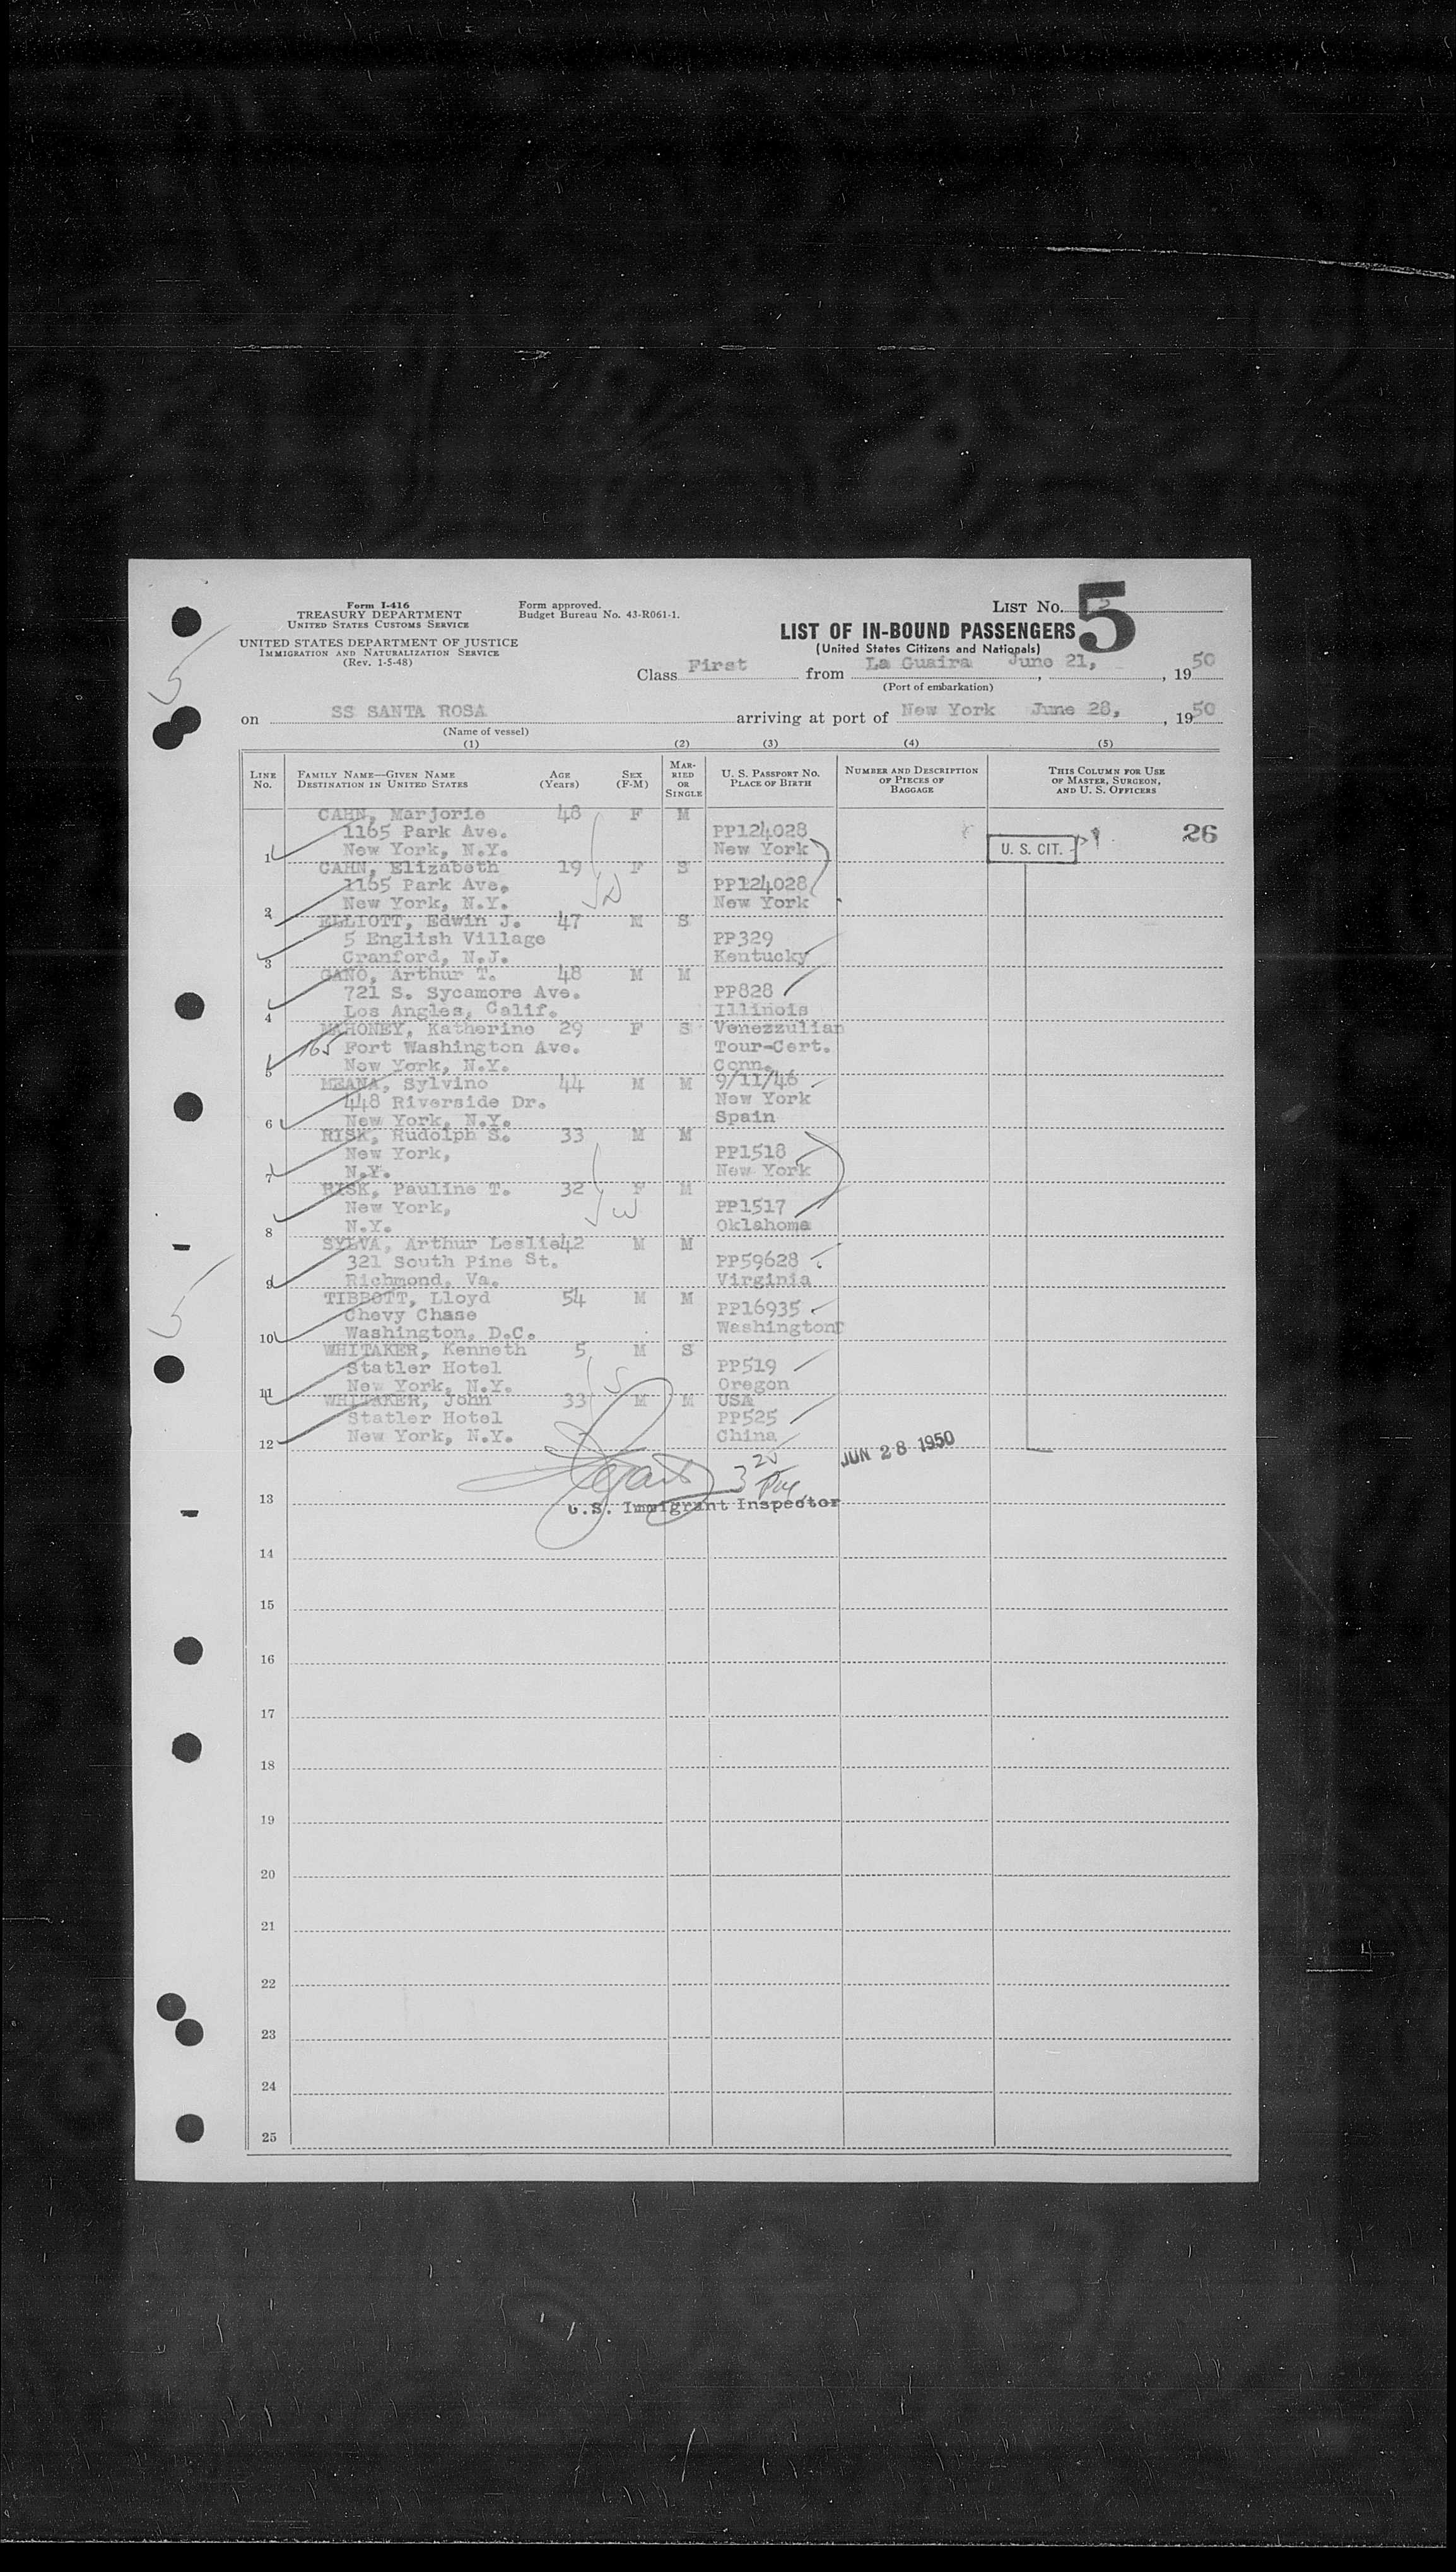 Form I-416
TREASURY DEPARTMENT
UNITED STATES CUSTOMS SERVICE
UNITED STATES DEPARTMENT OF JUSTICE
IMMIGRATION AND NATURALIZATION SERVICE
(Rev. 1-5-48)
Form approved.
Budget Bureau No. 43-R061-1.
LIST No. 5
LIST OF IN-BOUND PASSENGERS
(United States Citizens and Nationals)
Class First from La Guaira June 21, , 1950
(Port of embarkation)
on SS SANTA ROSA arriving at port of New York June 28, , 1950
(Name of vessel)
(1) (2) (3) (4) (5)
LINE No. FAMILY NAME—GIVEN NAME DESTINATION IN UNITED STATES AGE (Years) SEX (F-M) MARRIED OR SINGLE U. S. PASSPORT NO. PLACE OF BIRTH NUMBER AND DESCRIPTION OF PIECES OF BAGGAGE THIS COLUMN FOR USE OF MASTER, SURGEON, AND U. S. OFFICERS
CAHN, Marjorie 48 F M
1165 Park Ave. PP124028 26
1 New York, N.Y. New York U. S. CIT.
CAHN, Elizabeth 19 F S
1165 Park Ave. PP124028
2 New York, N.Y. New York
ELLIOTT, Edwin J. 47 M S
5 English Village PP329
3 Cranford, N.J. Kentucky
GANO, Arthur T. 48 M M
721 S. Sycamore Ave. PP828
4 Los Angles, Calif. Illinois
MAHONEY, Katherine 29 F S Venezzulian
165 Fort Washington Ave. Tour-Cert.
5 New York, N.Y. Conn.
MEANA, Sylvino 44 M M 9/11/46
448 Riverside Dr. New York
6 New York, N.Y. Spain
RISK, Rudolph S. 33 M M
New York, PP1518
7 N.Y. New York
RISK, Pauline T. 32 F M
New York, PP1517
8 N.Y. Oklahoma
SYLVA, Arthur Leslie 42 M M
321 South Pine St. PP59628
9 Richmond, Va. Virginia
TIBBOTT, Lloyd 54 M M
Chevy Chase PP16935
10 Washington, D.C. Washington
WHITAKER, Kenneth 5 M S
Statler Hotel PP519
11 New York, N.Y. Oregon
WHITAKER, John 33 M M USA
Statler Hotel PP525
12 New York, N.Y. China
JUN 28 1950
13 U.S. Immigrant Inspector
14
15
16
17
18
19
20
21
22
23
24
25